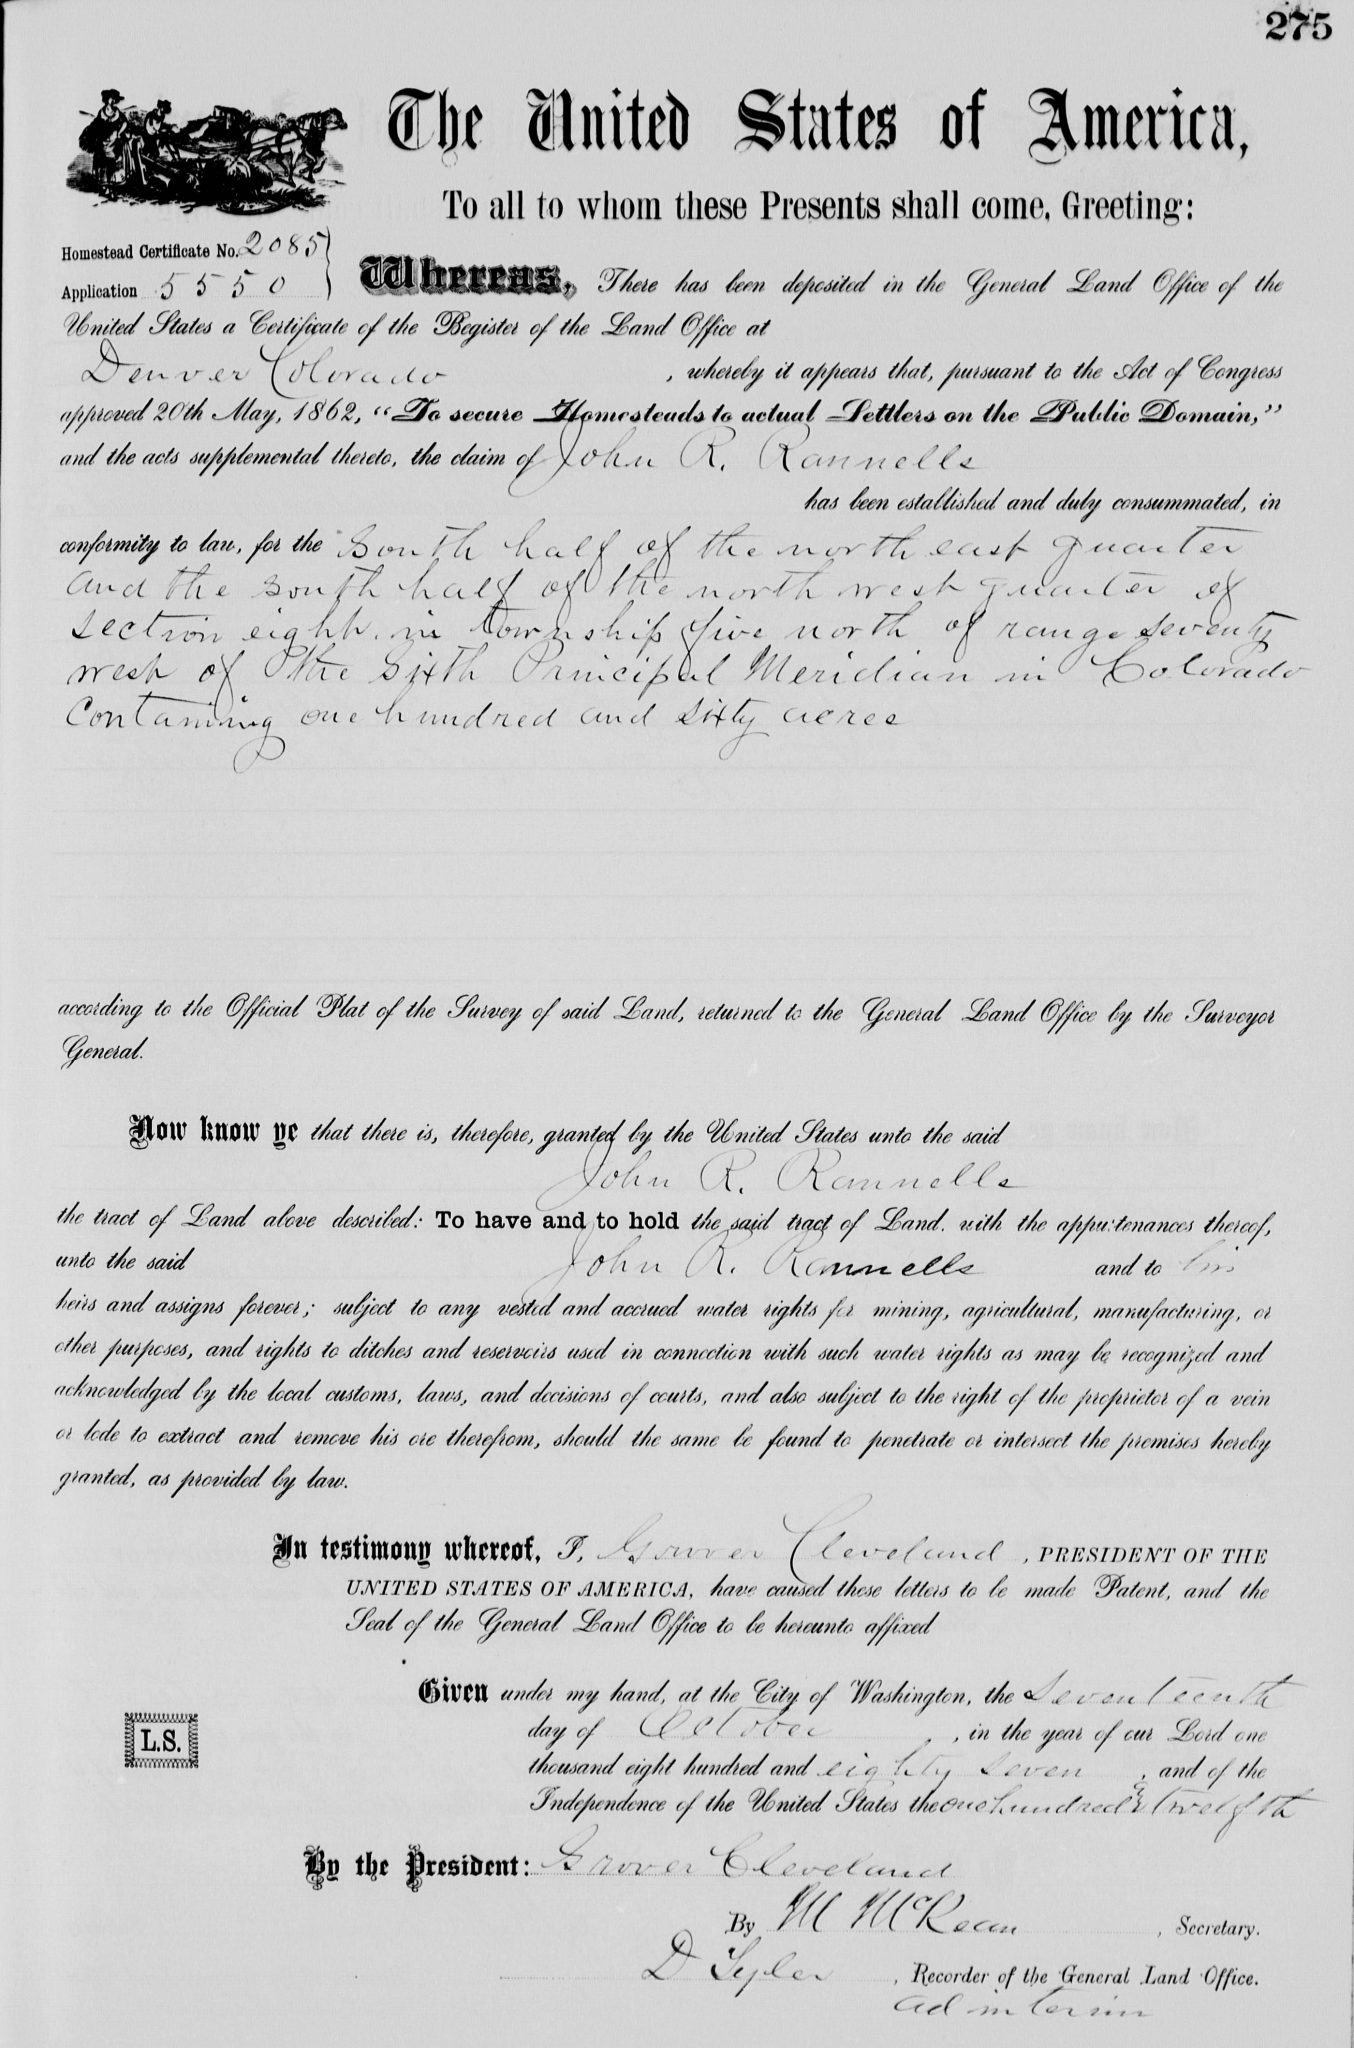 275
The United States of America,
To all to whom these Presents shall come, Greeting:
Homestead Certificate No. 2085
Application 5550
Whereas, There has been deposited in the General Land Office of the
United States a Certificate of the Register of the Land Office at
Denver Colorado , whereby it appears that, pursuant to the Act of Congress
approved 20th May, 1862, "To secure Homesteads to actual Settlers on the Public Domain,"
and the acts supplemental thereto, the claim of John R. Rannells
has been established and duly consummated, in
conformity to law, for the South half of the north east quarter
and the south half of the north west quarter of
section eight in township five north of range seventy
west of the Sixth Principal Meridian in Colorado
Containing one hundred and sixty acres
according to the Official Plat of the Survey of said Land, returned to the General Land Office by the Surveyor
General.
Now know ye that there is, therefore, granted by the United States unto the said
John R. Rannells
the tract of Land above described: To have and to hold the said tract of Land, with the appurtenances thereof,
unto the said John R. Rannells and to his
heirs and assigns forever; subject to any vested and accrued water rights for mining, agricultural, manufacturing, or
other purposes, and rights to ditches and reservoirs used in connection with such water rights as may be recognized and
acknowledged by the local customs, laws, and decisions of courts, and also subject to the right of the proprietor of a vein
or lode to extract and remove his ore therefrom, should the same be found to penetrate or intersect the premises hereby
granted, as provided by law.
In testimony whereof, I, Grover Cleveland , PRESIDENT OF THE
UNITED STATES OF AMERICA, have caused these letters to be made Patent, and the
Seal of the General Land Office to be hereunto affixed
Given under my hand, at the City of Washington, the seventeenth
day of October , in the year of our Lord one
L.S.
thousand eight hundred and eighty seven , and of the
Independence of the United States the one hundred & twelfth
By the President: Grover Cleveland
By M McKean , Secretary.
D Tyler , Recorder of the General Land Office.
ad interim